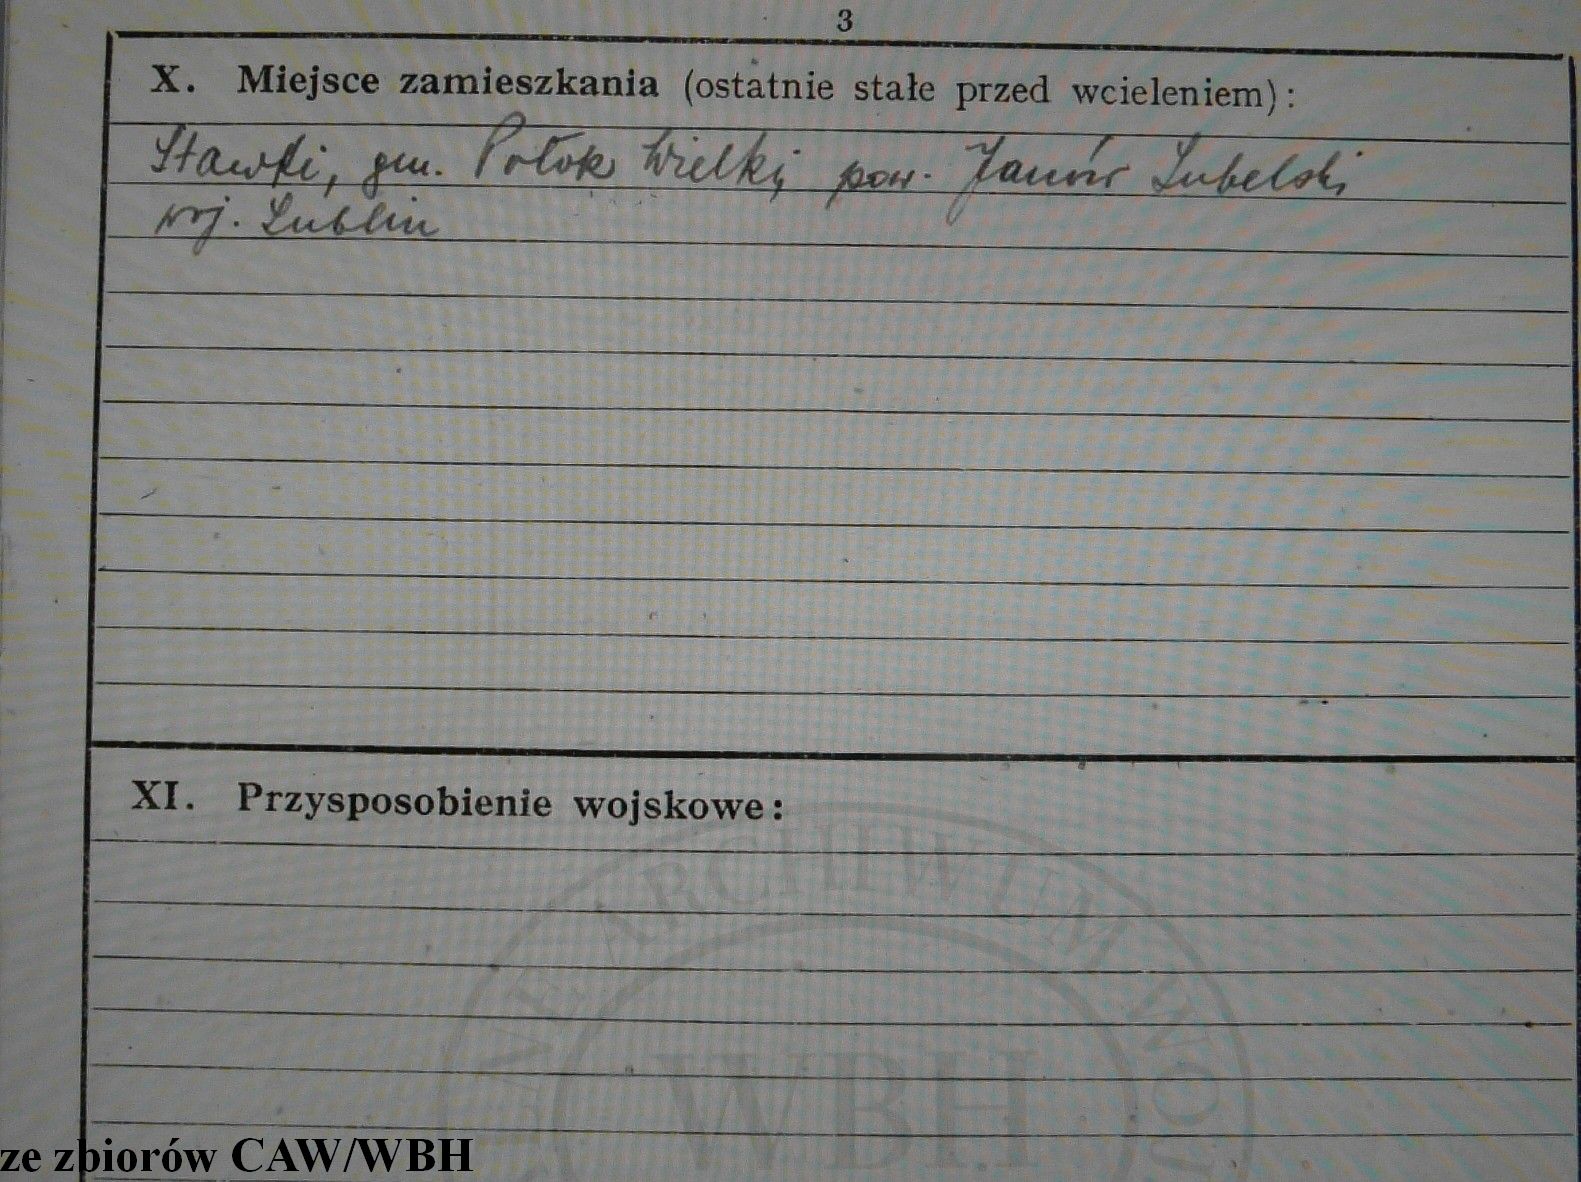 3
X. Miejsce zamieszkania (ostatnie stałe przed wcieleniem):
Stawki, gm. Potok Wielki, pow. Janów Lubelski
woj. Lublin
XI. Przysposobienie wojskowe:
ARCHIWUM WO
WBH
ze zbiorów CAW/WBH